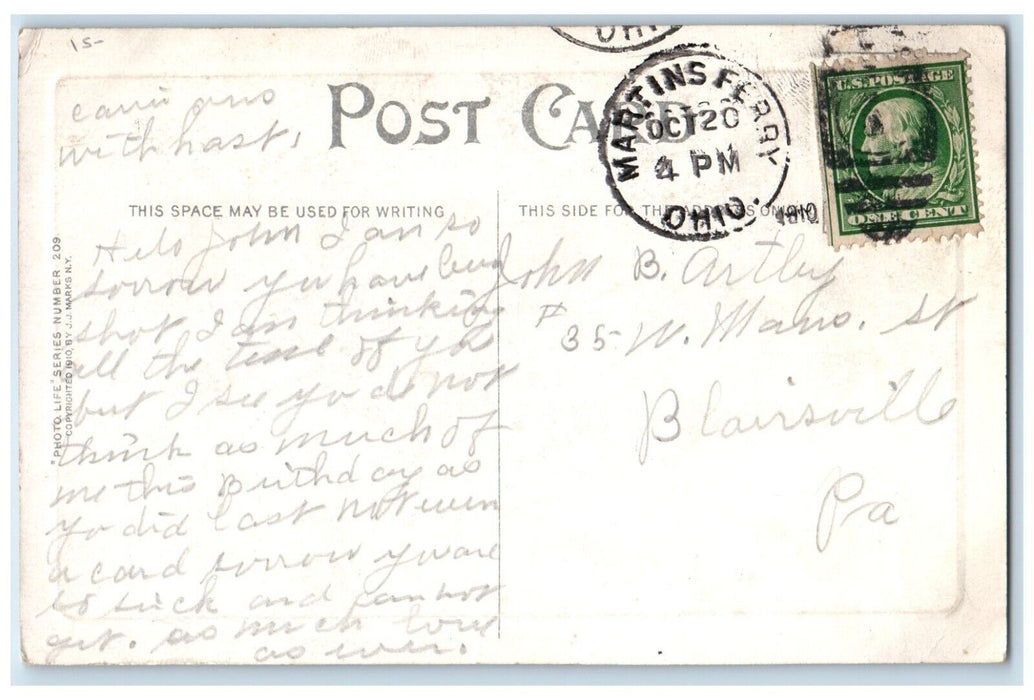 15-
OHI
with hast,
POST CARD
MARTINS FERRY
OCT 20
4 PM
1910
OHIO.
U.S. POSTAGE
ONE CENT
THIS SPACE MAY BE USED FOR WRITING
THIS SIDE FOR THE ADDRESS ONLY
"PHOTO LIFE" SERIES NUMBER 209
COPYRIGHTED 1910, BY J.J. MARKS N.Y.
Helo John I am so
sorrow yu have been
shot I am thinking
all the time of yo
but I see yo do not
think as much of
me this Birthday as
yo did last Not even
a card sorrow yo are
so sick and can not
get. as much love
as ever.
John B. Artley
# 35- W. Main. St
Blairsville
Pa